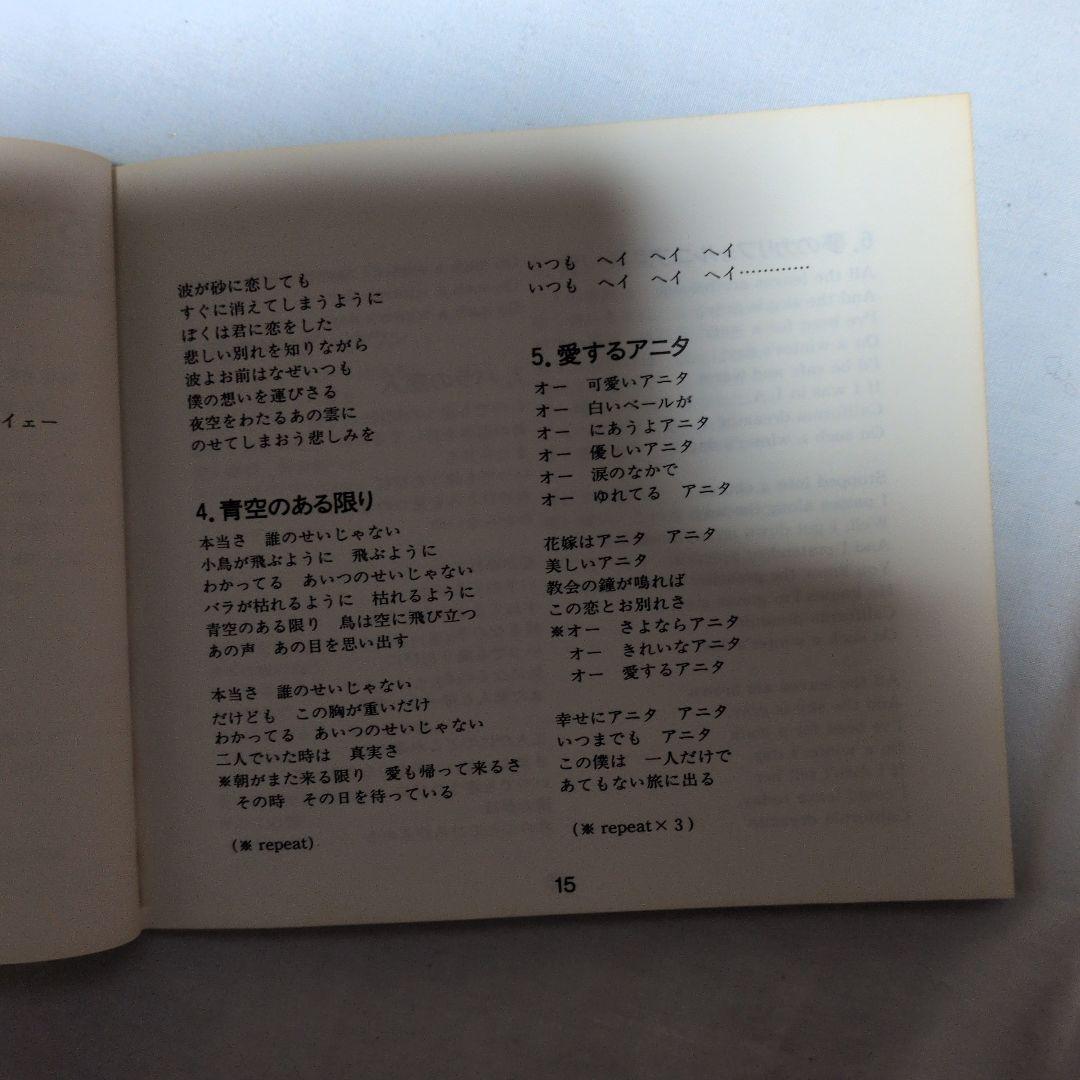 イェー
波が砂に恋しても
すぐに消えてしまうように
ぼくは君に恋をした
悲しい別れを知りながら
波よお前はなぜいつも
僕の想いを運びさる
夜空をわたるあの雲に
のせてしまおう悲しみを
4.青空のある限り
本当さ　誰のせいじゃない
小鳥が飛ぶように　飛ぶように
わかってる　あいつのせいじゃない
バラが枯れるように　枯れるように
青空のある限り　鳥は空に飛び立つ
あの声　あの目を思い出す
本当さ　誰のせいじゃない
だけども　この胸が重いだけ
わかってる　あいつのせいじゃない
二人でいた時は　真実さ
※朝がまた来る限り　愛も帰って来るさ
その時　その日を待っている
(※ repeat)
いつも　ヘイ　ヘイ　ヘイ
いつも　ヘイ　ヘイ　ヘイ…………
5.愛するアニタ
オー　可愛いアニタ
オー　白いベールが
オー　にあうよアニタ
オー　優しいアニタ
オー　涙のなかで
オー　ゆれてる　アニタ
花嫁はアニタ　アニタ
美しいアニタ
教会の鐘が鳴れば
この恋とお別れさ
※オー　さよならアニタ
オー　きれいなアニタ
オー　愛するアニタ
幸せにアニタ　アニタ
いつまでも　アニタ
この僕は　一人だけで
あてもない旅に出る
(※ repeat×3)
15